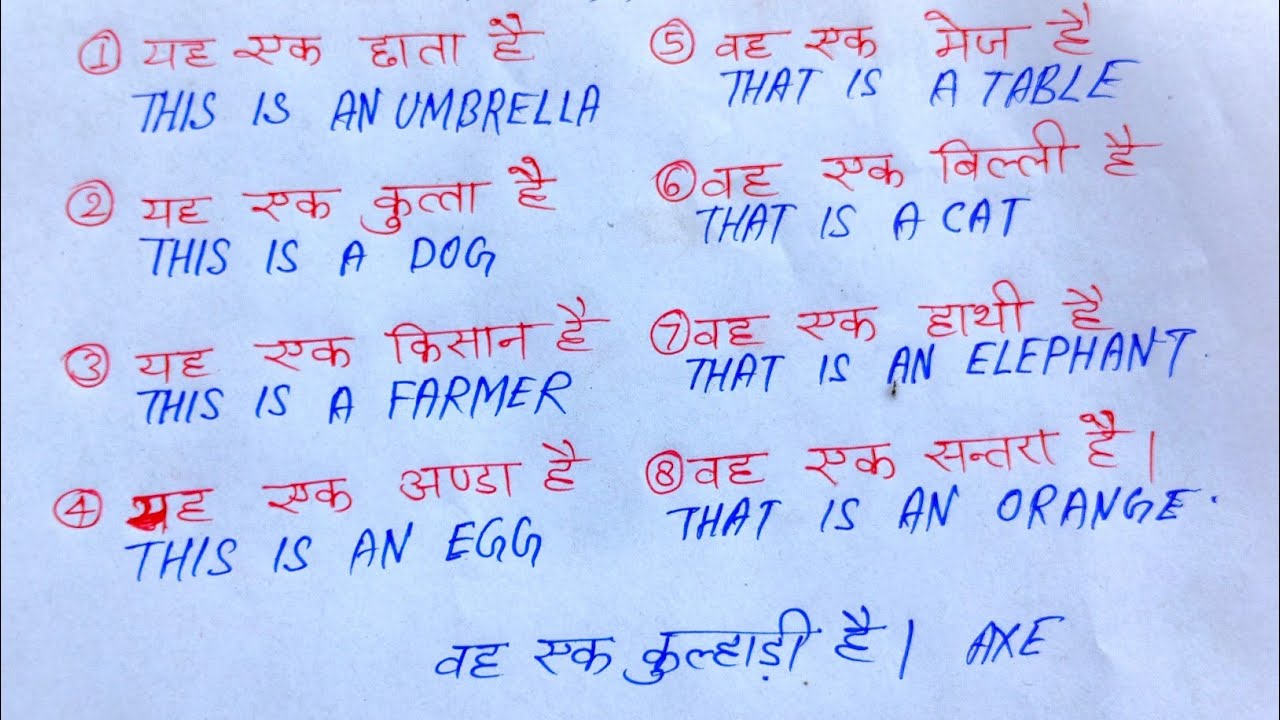 ① यह एक छाता है
THIS IS AN UMBRELLA
② यह एक कुत्ता है
THIS IS A DOG
③ यह एक किसान है
THIS IS A FARMER
④ यह एक अण्डा है
THIS IS AN EGG
⑤ वह एक मेज है
THAT IS A TABLE
⑥ वह एक बिल्ली है
THAT IS A CAT
⑦ वह एक हाथी है
THAT IS AN ELEPHANT.
⑧ वह एक सन्तरा है।
THAT IS AN ORANGE.
वह एक कुल्हाड़ी है। AXE